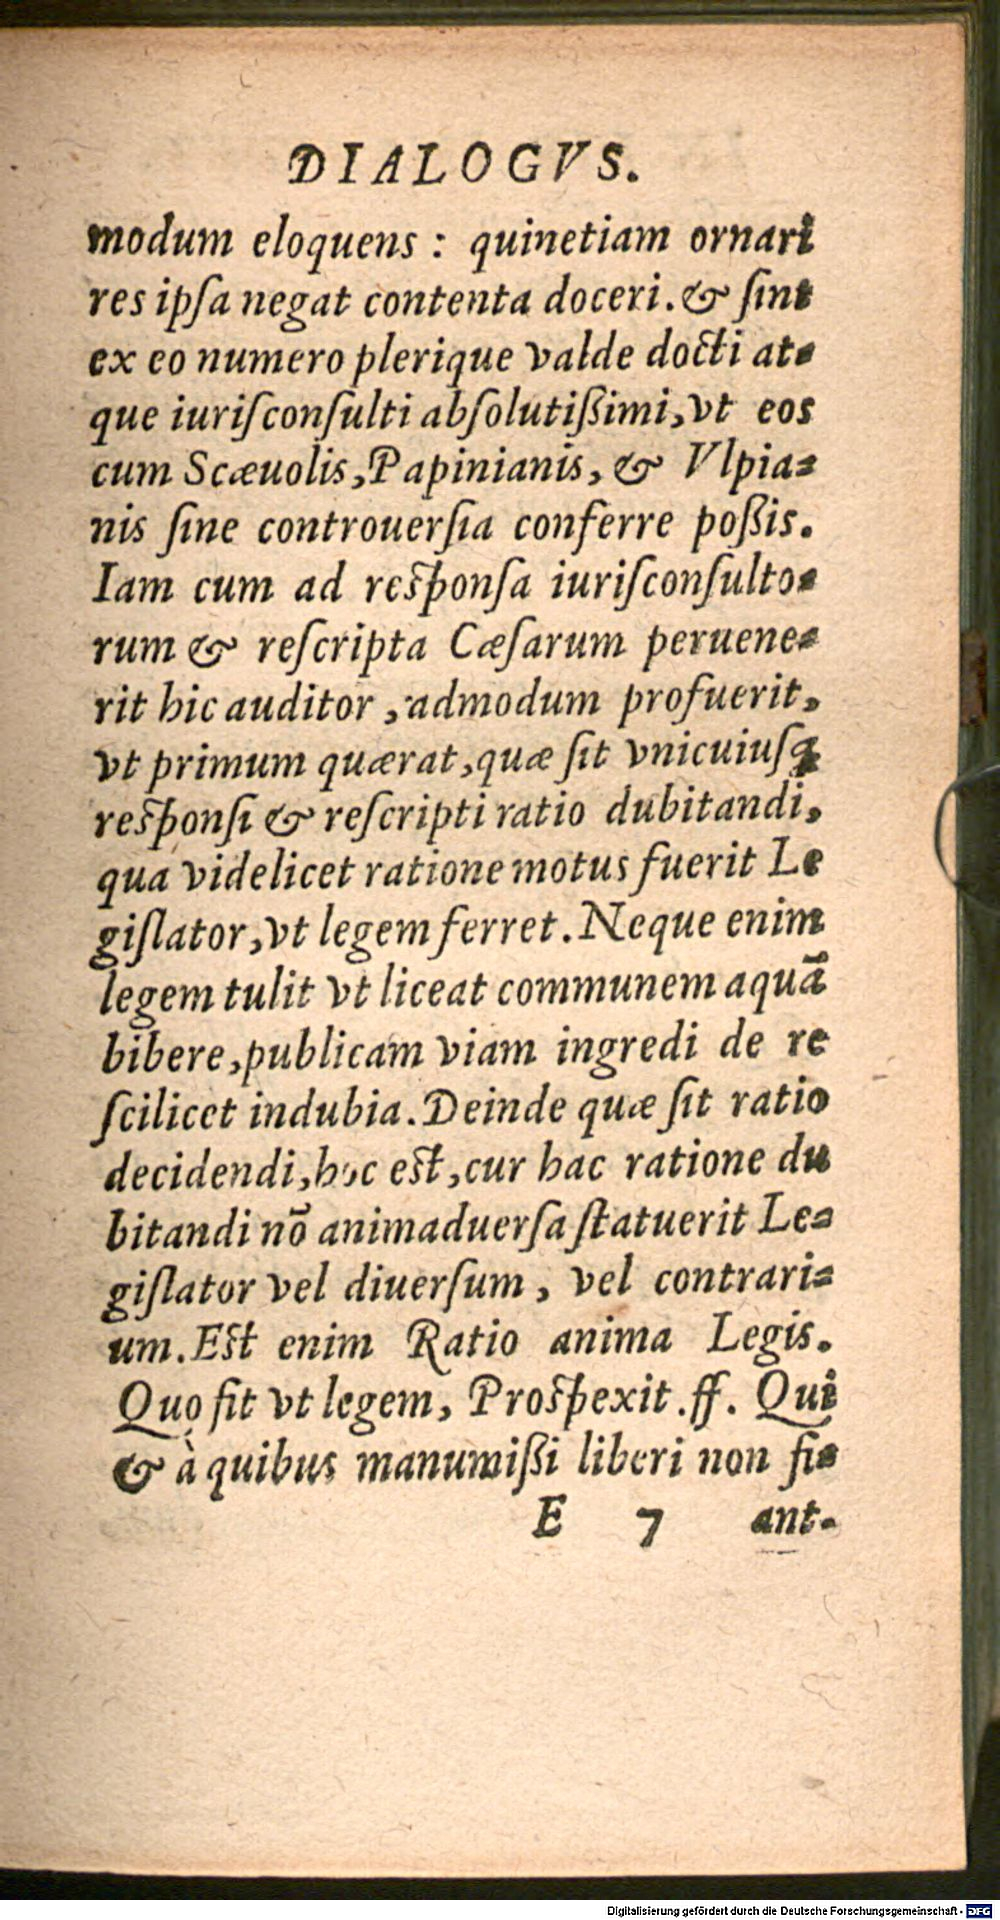 DIALOGVS.
modum eloquens : quinetiam ornari
res ipſa negat contenta doceri. & ſint
ex eo numero plerique valde docti at-
que iuriſconſulti abſolutißimi, vt eos
cum Scæuolis, Papinianis, & Vlpia-
nis ſine controuerſia conferre poßis.
Iam cum ad reſponſa iuriſconſulto-
rum & reſcripta Cæſarum peruene-
rit hic auditor, admodum profuerit,
vt primum quærat, quæ ſit vnicuiuſq;
reſponſi & reſcripti ratio dubitandi,
qua videlicet ratione motus fuerit Le
giſlator, vt legem ferret. Neque enim
legem tulit vt liceat communem aquā
bibere, publicam viam ingredi de re
ſcilicet indubia. Deinde quæ ſit ratio
decidendi, hoc eſt, cur hac ratione du
bitandi nō animaduerſa ſtatuerit Le-
giſlator vel diuerſum, vel contrari-
um. Eſt enim Ratio anima Legis.
Quo fit vt legem, Proſpexit .ff. Qui
& à quibus manumißi liberi non fi-
E 7 ant.
Digitalisierung gefördert durch die Deutsche Forschungsgemeinschaft - DFG